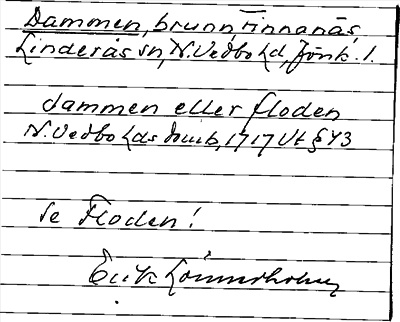 Dammen, brunn, Finnanäs,
Linderås sn, N. Vedbo hd, Jönk. l.
dammen eller floden
N. Vedbo hds domb, 1717 Vt § 43
Se Floden!
Erik